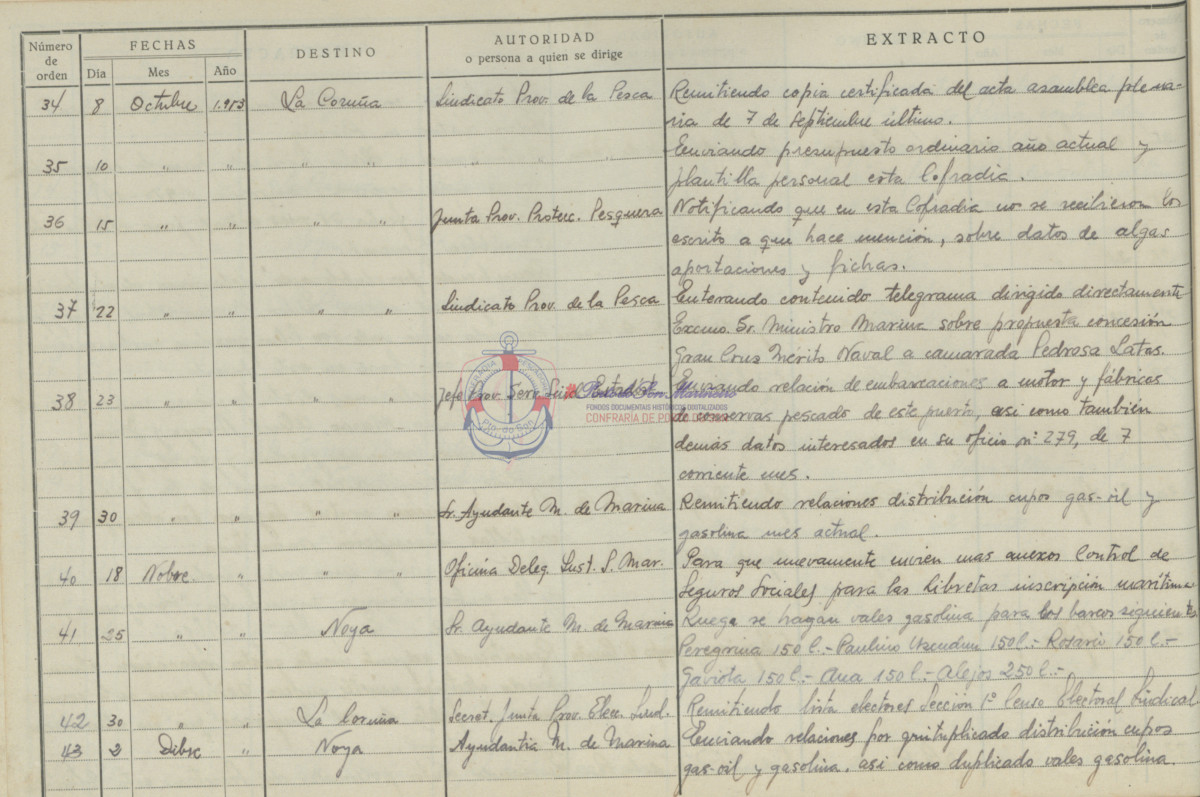 Número de orden FECHAS DESTINO AUTORIDAD o persona a quien se dirige EXTRACTO
Dia Mes Año
34 8 Octubre 1.953 La Coruña Sindicato Prov. de la Pesca Remitiendo copia certificada del acta asamblea plena-
ria de 7 de Septiembre último.
35 10 " " " " " " Enviando presupuesto ordinario año actual y
plantilla personal esta Cofradia.
36 15 " " " " Junta Prov. Protec. Pesquera Notificando que en esta Cofradia no se recibieron los
escrito a que hace mención, sobre datos de algas
aportaciones y fichas.
37 22 " " " " Sindicato Prov. de la Pesca Enterando contenido telegrama dirigido directamente
Excmo. Sr. Ministro Marina sobre propuesta concesión
Gran Cruz Mérito Naval a camarada Pedrosa Latas.
38 23 " " " " Jefe Prov. Serv. Enviando relación de embarcaciones a motor y fábricas
de conservas pescado de este puerto, asi como también
demás datos interesados en su oficio nº 279, de 7
corriente mes.
39 30 " " " " Sr. Ayudante M. de Marina Remitiendo relaciones distribución cupos gas-oil y
gasolina mes actual.
40 18 Nobre. " " " Oficina Deleg. Inst. S. Mar. Para que nuevamente envien mas anexos Control de
Seguros Sociales para las Libretas inscripción maritima
41 25 " " Noya Sr. Ayudante M. de Marina Ruega se hagan vales gasolina para los barcos siguientes
Peregrina 150 l.- Paulino Uzcudun 150 l.- Rosario 150 l.-
Gaviota 150 l.- Ana 150 l.- Alejos 250 l.-
42 30 " " La Coruña Secret. Junta Prov. Elec. Sind. Remitiendo lista electores Sección 1ª Censo Electoral Sindical
43 2 Dibre " Noya Ayudantia M. de Marina Enviando relaciones por quintuplicado distribución cupos
gas-oil y gasolina, asi como duplicado vales gasolina.
FONDOS DOCUMENTAIS HISTÓRICOS DIGITALIZADOS
CONFRARÍA DE PORTO DO SON